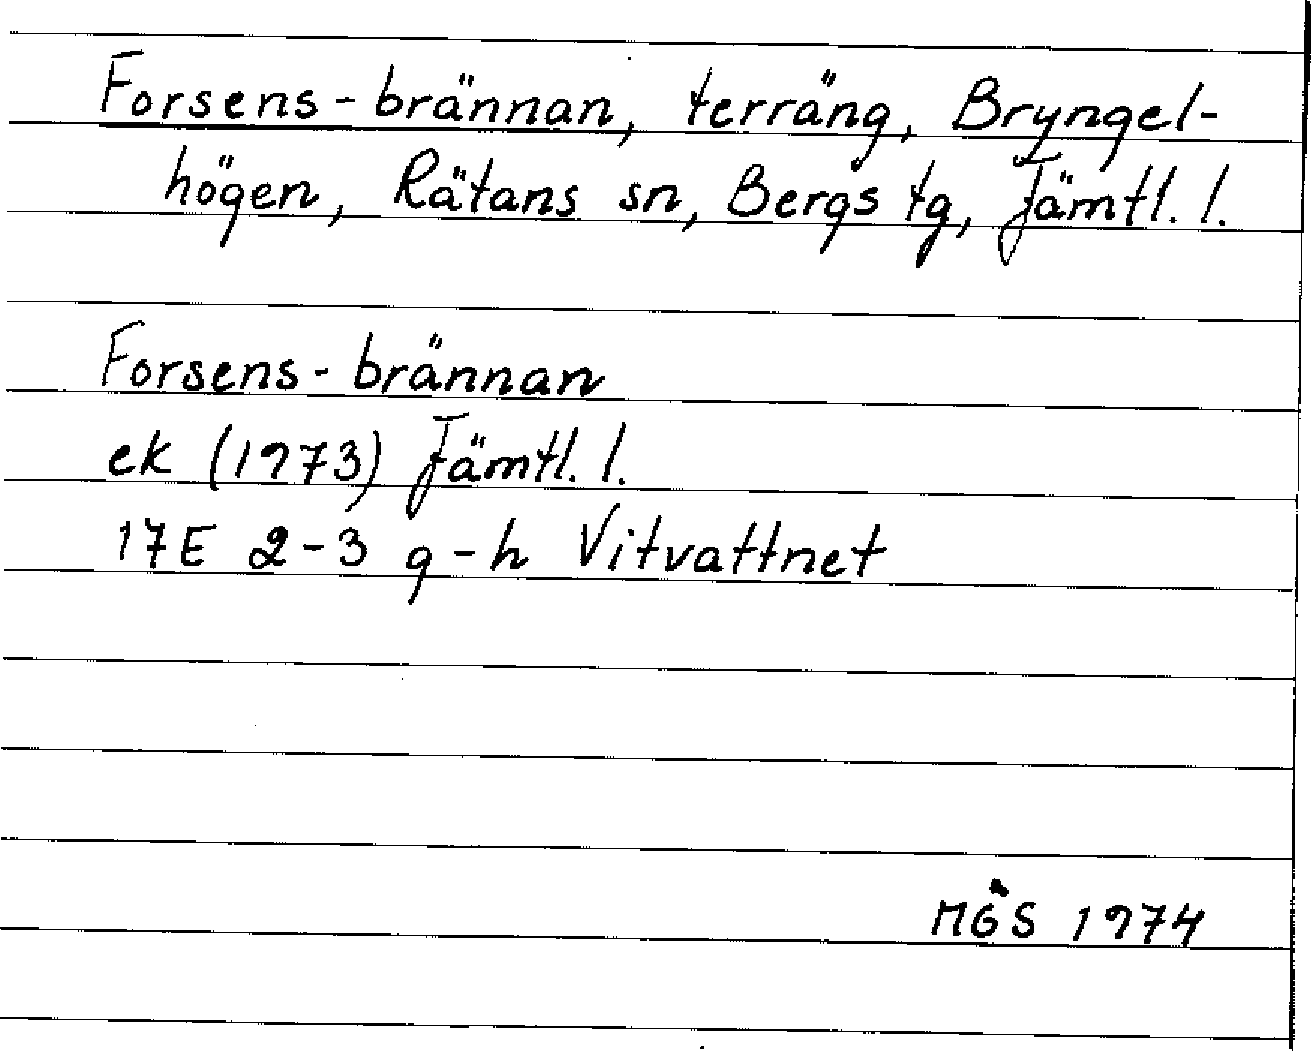 Forsens-brännan, terräng, Bryngel-
högen, Rätans sn, Bergs tg, Jämtl. l.
Forsens-brännan
ek (1973) Jämtl. l.
17E 2-3 g-h Vitvattnet
MGS 1974